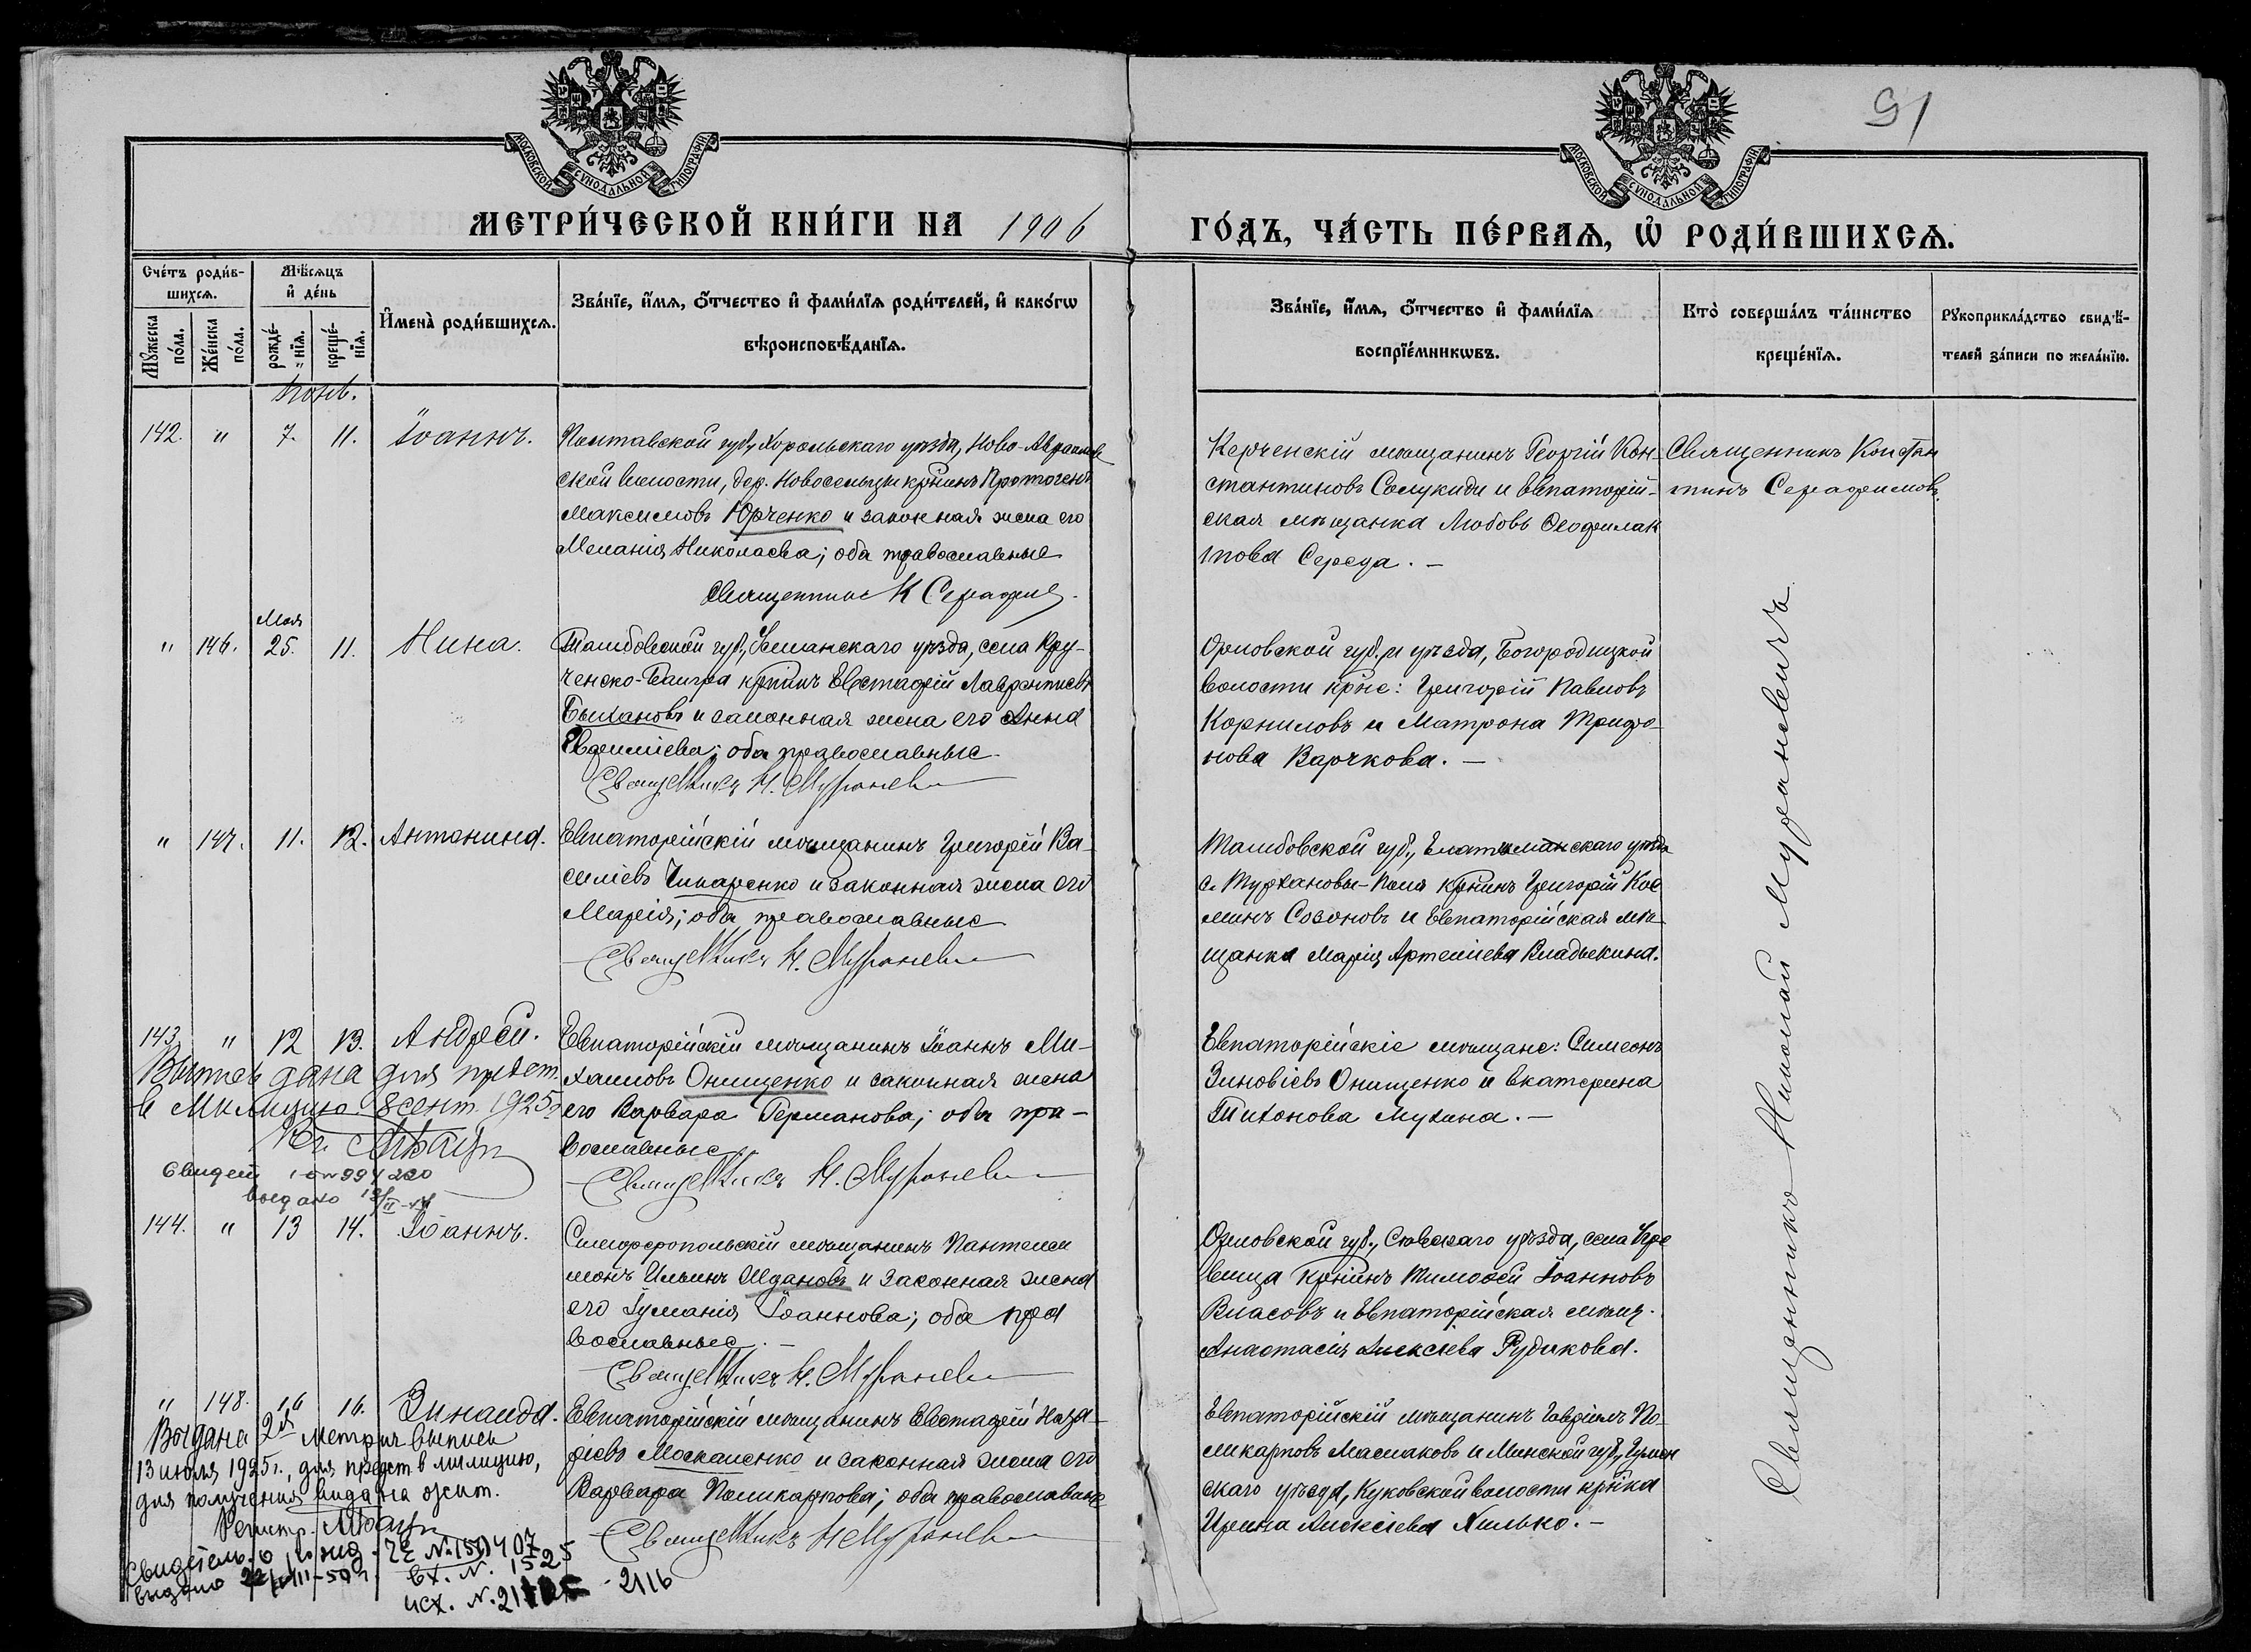 91
МОСКОВСКОЙ СѴНОДАЛЬНОЙ ТИПОГРАФІИ
МОСКОВСКОЙ СѴНОДАЛЬНОЙ ТИПОГРАФІИ
МЕТРИ́ЧЕСКОЙ КНИ́ГИ НА 1906
ГО́ДЪ, ЧА́СТЬ ПЕ́РВАѦ, Ѡ҆ РОДИ́ВШИХСѦ.
Сче́тъ роди́в-
шихсѧ.
Мꙋ́жеска по́ла.
Же́нска по́ла.
Мѣ́сѧцъ
и҆ де́нь
рожде́-нїѧ.
креще́-нїѧ.
И҆мена̀ роди́вшихсѧ.
Зва́нїе, и҆́мѧ, ѻ҆́тчество и҆ фами́лїѧ роди́телей, и҆ како́гѡ
вѣроисповѣ́данїѧ.
Зва́нїе, и҆́мѧ, ѻ҆́тчество и҆ фами́лїѧ
воспрїе́мникѡвъ.
Кто̀ соверша́лъ та́инство
креще́нїѧ.
Рꙋкоприкла́дство свидѣ́-
телей за́писи по жела́нїю.
Іюнь.
142. " 7. 11. Іоаннъ.
Полтавской губ., Хорольскаго уѣзда, Ново-Авраамов
ской волости, дер. Новоселицы крнинъ Протогенъ
Максимовъ Юрченко и законная жена его
Меланія Николаева; оба православные
Священникъ К Серафимов
Керченскій мѣщанинъ Георгій Кон-
стантиновъ Солукиди и Евпаторій-
ская мѣщанка Любовь Ѳеофилак
това Середа. —
Священникъ Констан
тинъ Серафимовъ.
Мая
" 146. 25. 11. Нина.
Тамбовской губ., Усманскаго уѣзда, села Кру-
ченско-Байгра крнинъ Евстафій Лаврентіевъ
Быхановъ и законная жена его Анна
Евфиміева; оба православные.
Священникъ Н. Мураневич
Орловской губ. и уѣзда, Богородицкой
волости крне: Григорій Павловъ
Корниловъ и Матрона Трифо-
нова Варчкова. —
" 147. 11. 12. Антонина.
Евпаторійскій мѣщанинъ Григорій Ва-
силіевъ Чипаренко и законная жена его
Марія; оба православные
Священникъ Н. Мураневич
Тамбовской губ., Елатомскаго уѣзда
с. Мурханова-Поля крнинъ Григорій Кос
минъ Созоновъ и Евпаторійская мѣ-
щанка Марія Артеміева Владыкина.
143. " 12 13. Андрей.
Евпаторійскій мѣщанинъ Іоаннъ Ми-
хаиловъ Онищенко и законная жена
его Варвара Германова; оба пра-
вославные
Священникъ Н. Мураневич
Евпаторійскіе мѣщане: Симеонъ
Зиновіевъ Онищенко и Екатерина
Тихонова Мухина. —
Выпись дана для предст.
в милицию 8 сент. 1925 г.
Свидет
выдано
144. " 13 14. Іоаннъ.
Симферопольскій мѣщанинъ Пантелеи
монъ Ильинъ Ждановъ и законная жена
его Іуліанія Іоаннова; оба пра
вославные. —
Священникъ Н. Мураневич
Орловской губ., Сѣвскаго уѣзда, села Пре
вища крнинъ Тимоѳей Іоанновъ
Власовъ и Евпаторійская мѣщ.
Анастасія Алексіева Рудикова.
" 148. 16 16. Зинаида.
Евпаторійскій мѣщанинъ Евстафій Наза-
ріевъ Москаленко и законная жена его
Варвара Поликарпова; оба православные
Священникъ Н Мураневич
Евпаторійскій мѣщанинъ Гавріилъ По-
ликарповъ Маслаковъ и Минской губ., Игумен
скаго уѣзда, Куковской волости крнка
Ирина Алексіева Хилько. —
Выдана 2я метрич выпись
13 июля 1925 г., для предст в милицию,
для получения вида на жит.
Регистр.
Свидетель. о рожд. ЧЕ
вх. N. 1525
выдано 22/VIII-50 г.
исх. N. 2116
Священникъ Николай Мураневичъ